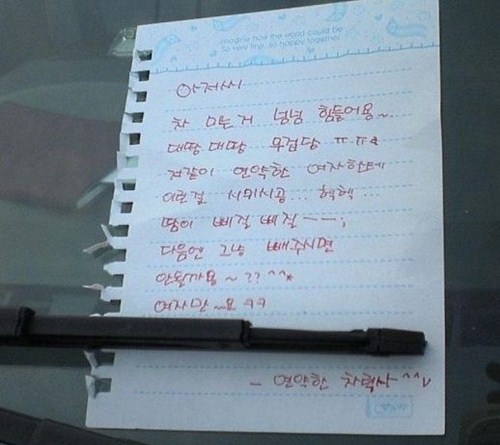 Imagine how the world could be
So very fine, so happy together
아저씨
차 미는거 넘넘 힘들어용~
대땅 대땅 무겁당 ㅠ.ㅠ
저같이 연약한 여자한테
이런걸 시키시공... 헥헥...
땀이 삐질 삐질 ㅡㅡ;
다음엔 그냥 빼주시면
안될까용~?? ^^*
여자만~요 ㅋㅋ
- 연약한 차력사 ^^v